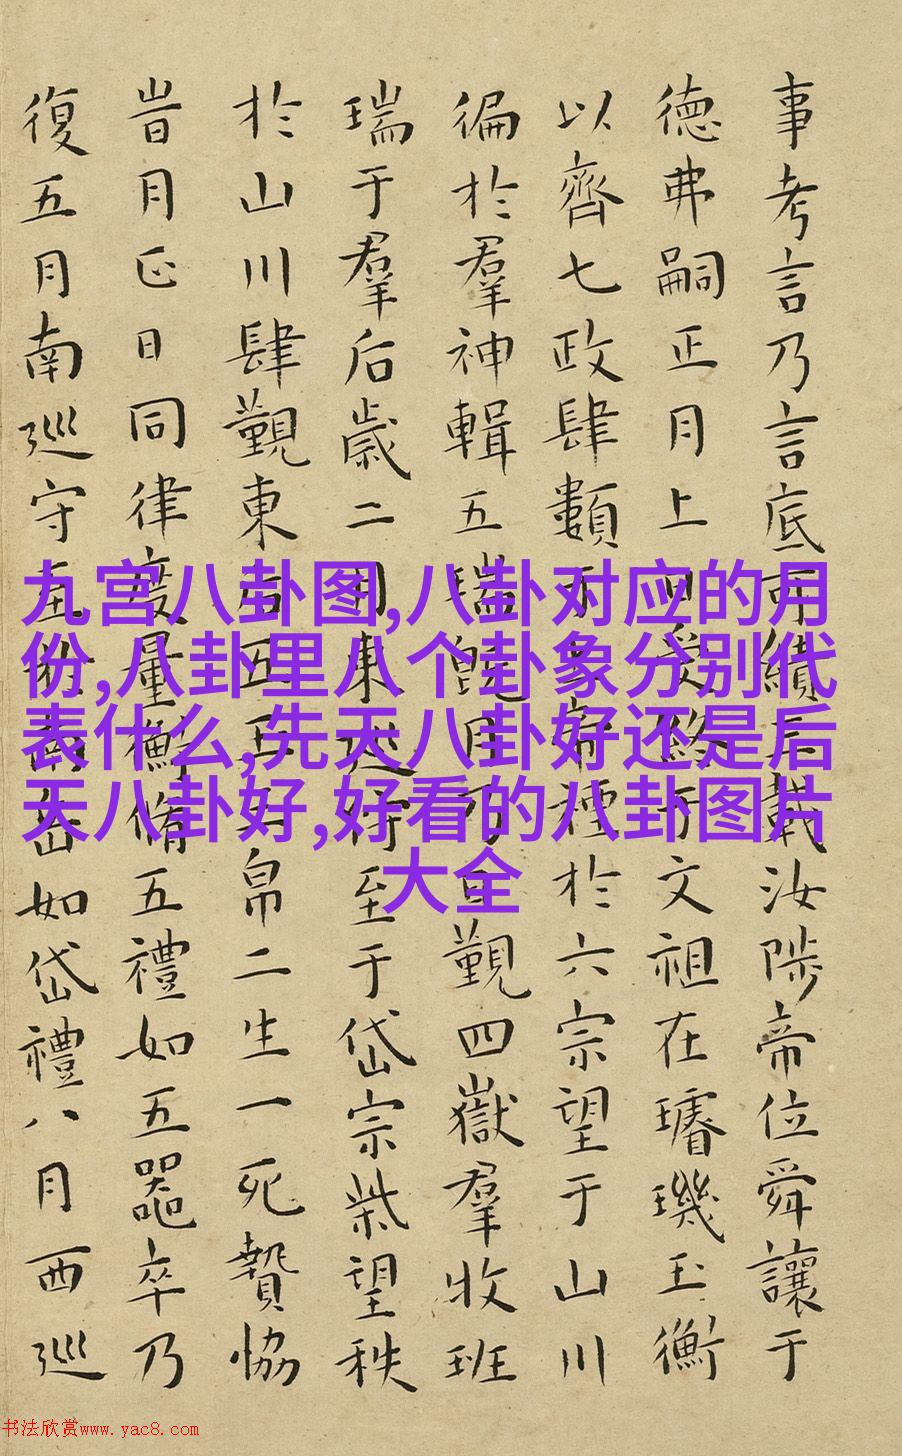 事考言乃言底可績三載汝陟帝位舜讓于
德弗嗣正月上日受終于文祖在璿璣玉衡
以齊七政肆類于帝禋於六宗望于山川
徧於羣神輯五瑞既月乃日覲四嶽羣牧班
瑞于羣后歲二月東巡狩至于岱宗柴望秩
於山川肆覲東后五玉帛二生一死贄協
旹月正日同律度量衡脩五禮如五器卒乃
復五月南巡守至於南岳如岱禮八月西巡
九宫八卦图,八卦对应的月
份,八卦里八个卦象分别代
表什么,先天八卦好还是后
天八卦好,好看的八卦图片
大全
书法欣赏www.yac8.com